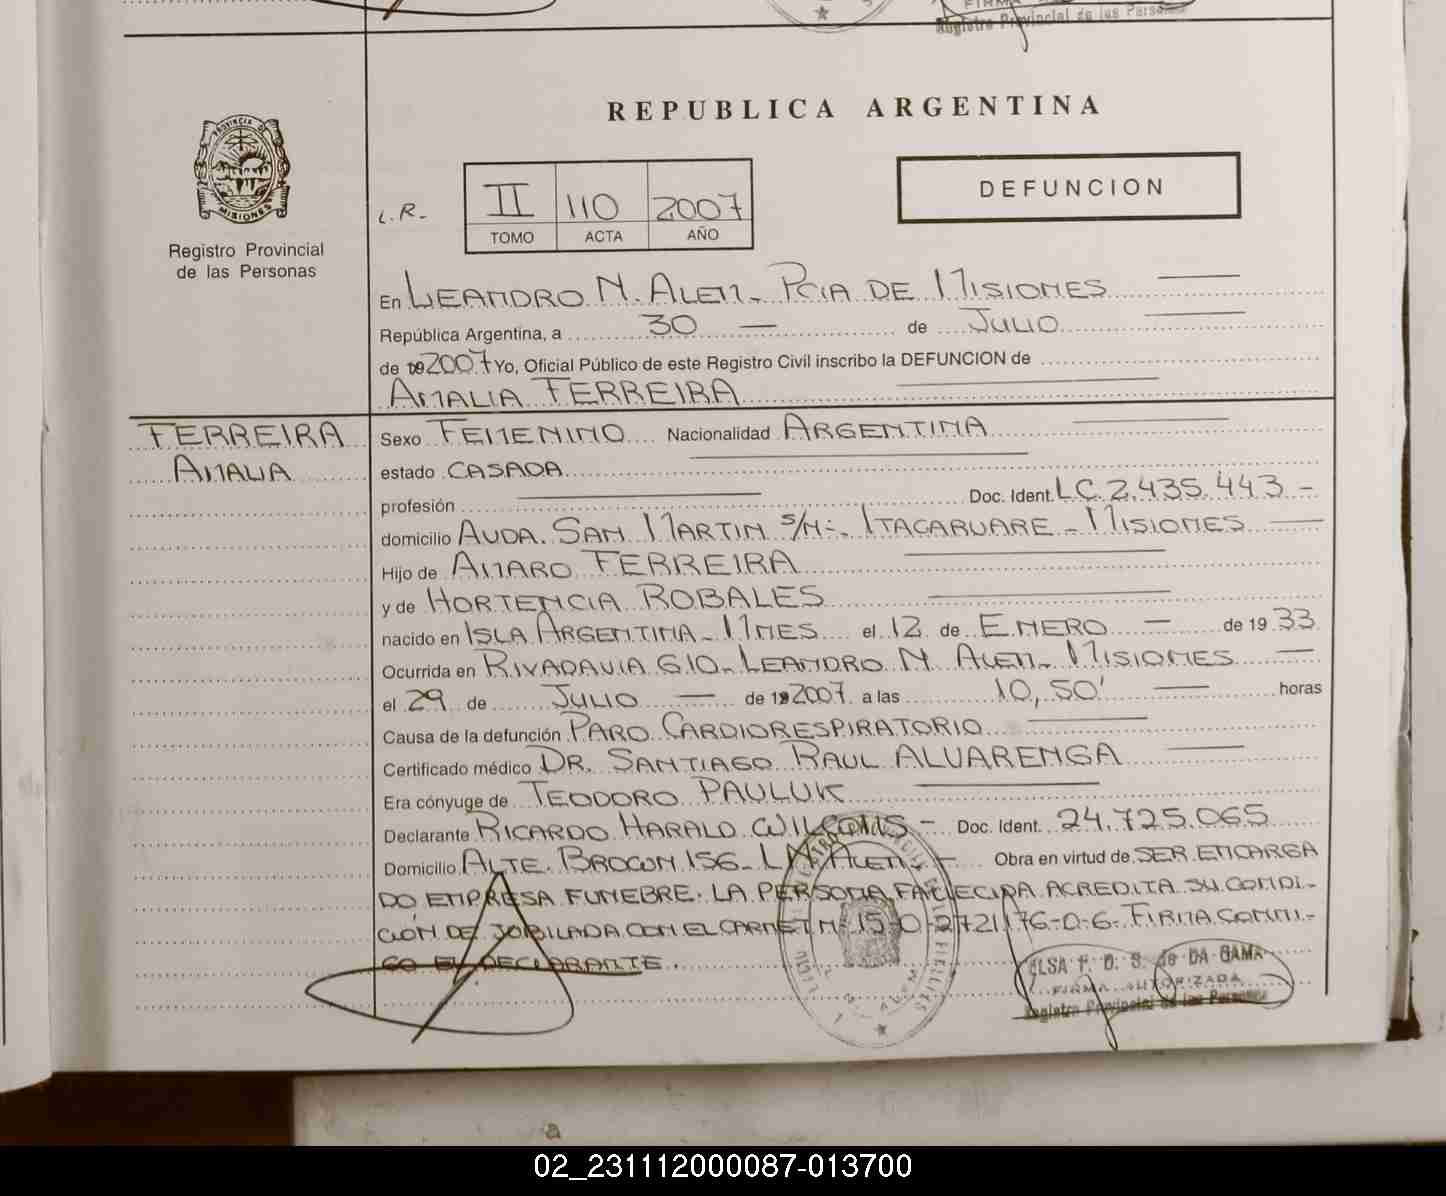 Registro Provincial de las Personas
REPUBLICA ARGENTINA
PROVINCIA DE
MISIONES
Registro Provincial
de las Personas
L.R.-
II 110 2007
TOMO ACTA AÑO
DEFUNCION
En LEANDRO N. ALEM - PCIA DE MISIONES
República Argentina, a 30 — de JULIO
de 2007 Yo, Oficial Público de este Registro Civil inscribo la DEFUNCION de
AMALIA FERREIRA
FERREIRA
AMALIA
Sexo FEMENINO Nacionalidad ARGENTINA
estado CASADA
profesión Doc. Ident. LC. 2.435.443 -
domicilio AVDA. SAN MARTIN S/N-. ITACARUARE - MISIONES
Hijo de AMARO FERREIRA
y de HORTENCIA ROBALES
nacido en ISLA ARGENTINA - MNES el 12 de ENERO — de 19 33
Ocurrida en RIVADAVIA 610 - LEANDRO N ALEM - MISIONES
el 29 de JULIO — de 2007 a las 10,50' horas
Causa de la defunción PARO CARDIORESPIRATORIO
Certificado médico DR. SANTIAGO RAUL ALVARENGA
Era cónyuge de TEODORO PAULUK
Declarante RICARDO HARALD - Doc. Ident. 24.725.065
Domicilio ALTE. BROWN 156 - L N ALEM - Obra en virtud de SER ENCARGA
DO EMPRESA FUNEBRE. LA PERSONA FALLECIDA ACREDITA SU CONDI-
CIÓN DE JUBILADA CON EL CARNET N- 15-0-2721176-0-6- FIRMA CONMI-
GO EL DECLARANTE.
ELSA F. D. S. de DA GAMA
FIRMA AUTORIZADA
Registro Provincial de las Personas
02_231112000087-013700